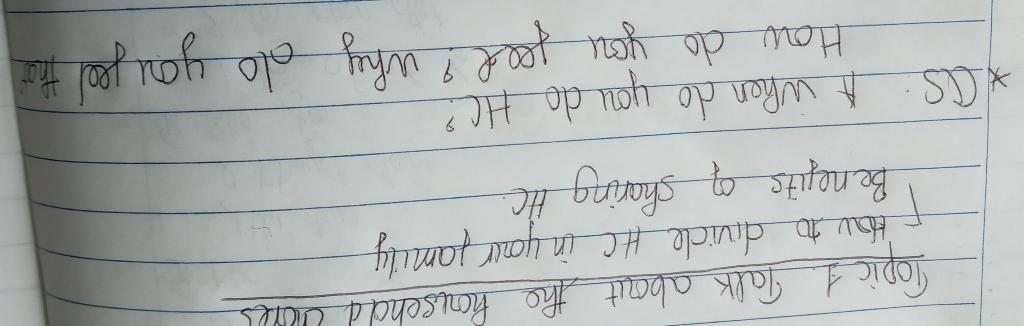 Topic 1. Talk about the household chores
How to divide HC in your family
Benefits of sharing HC.
* QS: 1 When do you do HC?
How do you feel? Why do you feel that